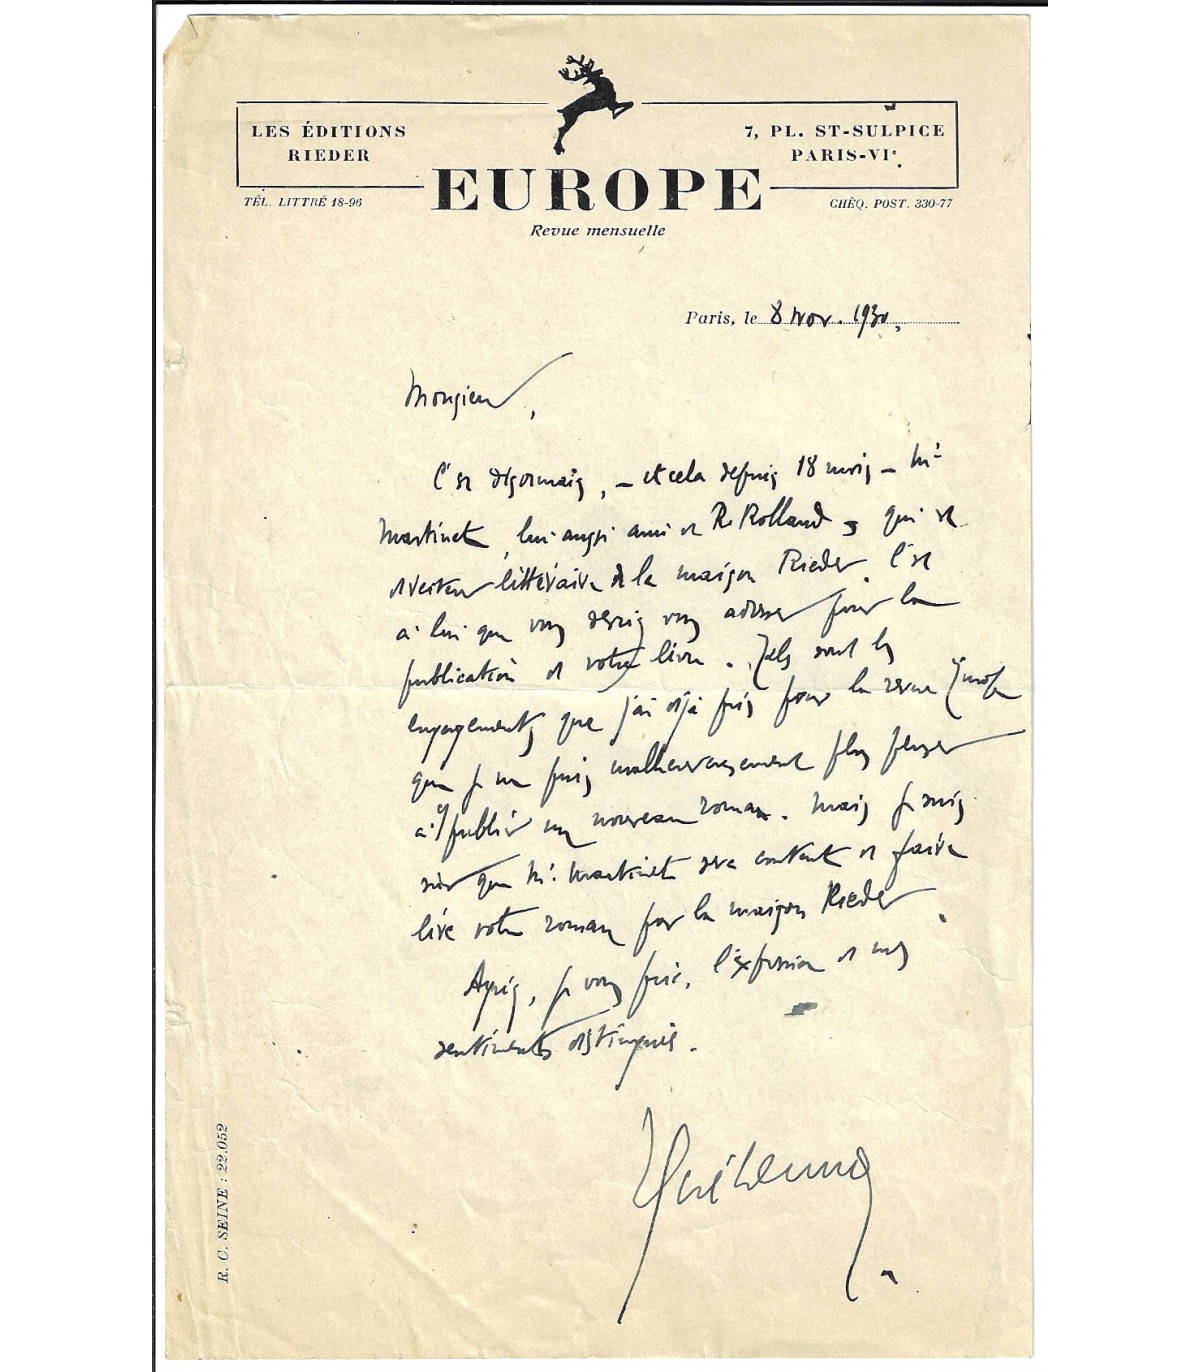 LES ÉDITIONS
RIEDER
7, PL. ST-SULPICE
PARIS-VIe
EUROPE
TÉL. LITTRÉ 18-96
CHÈQ. POST. 330-77
Revue mensuelle
Paris, le 8 Nov. 1930.
Monsieur,
C'est désormais, – et cela depuis 18 mois – Mr
Martinet, lui aussi ami de R. Rolland, qui est
directeur littéraire de la maison Rieder. C'est
à lui que vous devriez vous adresser pour la
publication de votre livre. Tels sont les
engagements que j'ai déjà pris pour la revue Europe
que je ne puis malheureusement plus penser
à y publier un nouveau roman. Mais je suis
sûr que Mr. Martinet sera content de faire
lire votre roman par la maison Rieder.
Agréez, je vous prie, l'expression de mes
sentiments distingués.
JGuéhenno
R. C. SEINE : 22.052